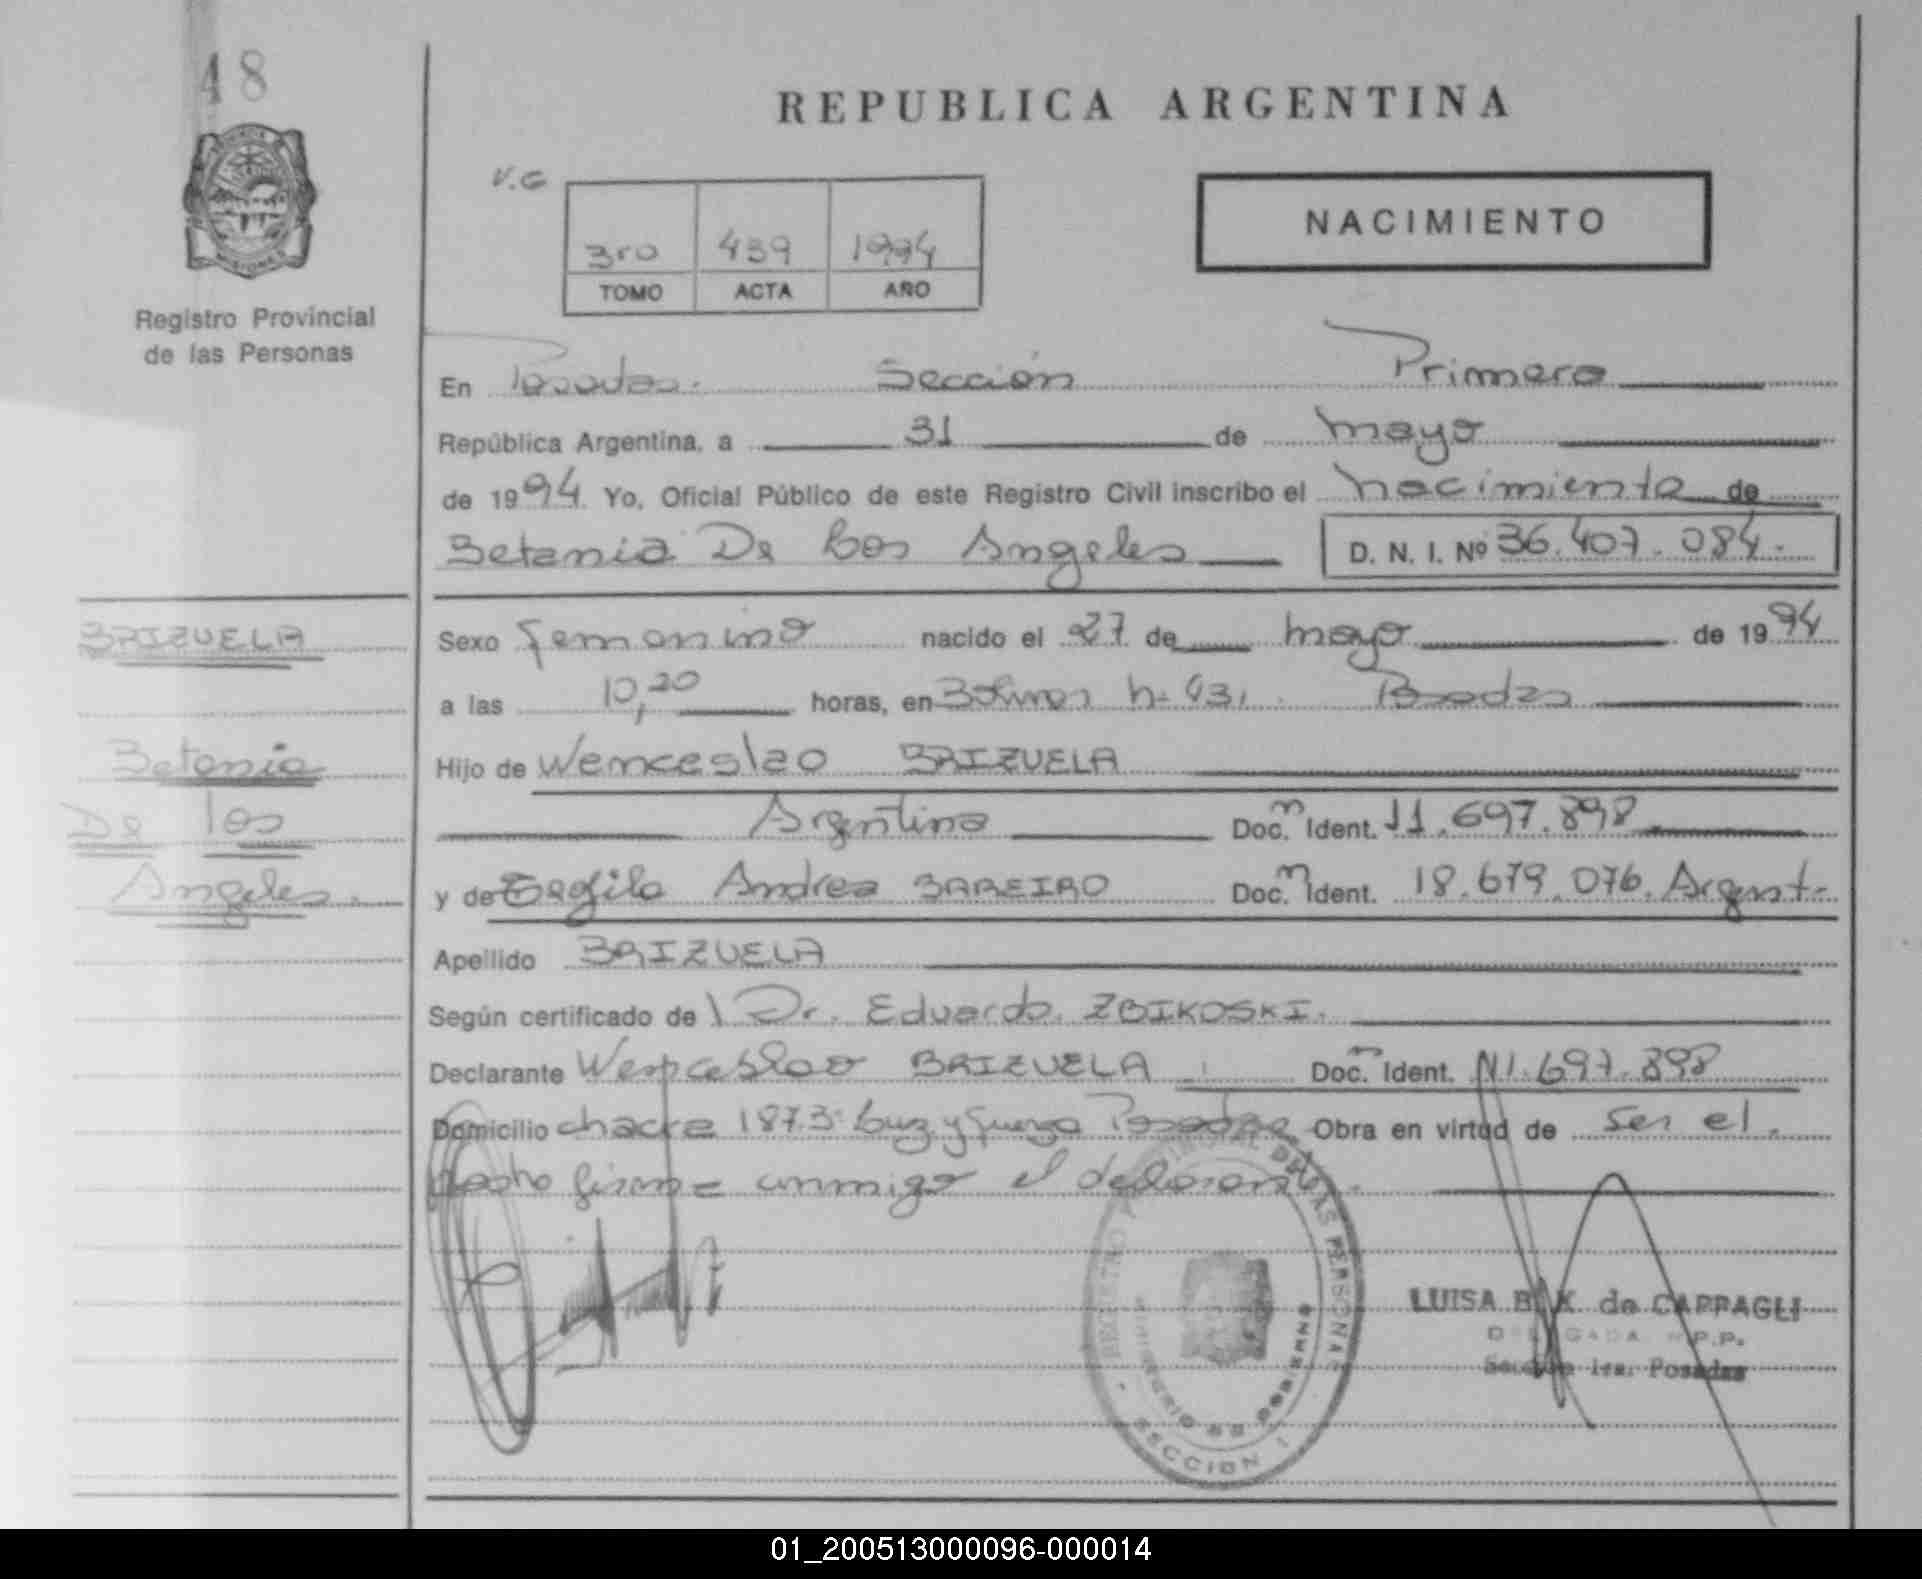 48
REPUBLICA ARGENTINA
V.G
NACIMIENTO
3ro 439 1994
TOMO ACTA AÑO
Registro Provincial
de las Personas
En Posadas. Sección Primera
República Argentina, a 31 de mayo
de 1994. Yo, Oficial Público de este Registro Civil inscribo el nacimiento de
Betania De Los Angeles D. N. I. Nº 36.407.084.
BRIZUELA
Sexo femenino nacido el 27 de mayo de 1994
a las 10,20 horas, en Posadas
Betania
Hijo de Wenceslao BRIZUELA
De los
Argentina Doc. Ident. 11.697.898.
Angeles.
y de Andrea BAREIRO Doc. Ident. 18.679.076. Argent.
Apellido BRIZUELA
Según certificado de Dr. Eduardo ZBIKOSKI.
Declarante Wenceslao BRIZUELA Doc. Ident. 11.697.898
Domicilio chacra Luz y fuerza Posadas Obra en virtud de ser el
padre firma conmigo el declarante.
REGISTRO PROVINCIAL DE LAS PERSONAS
MINISTERIO DE GOBIERNO
SECCION 1
LUISA B. K. de CAPPAGLI
DELEGADA R.P.P.
Sección 1ra. Posadas
01_200513000096-000014